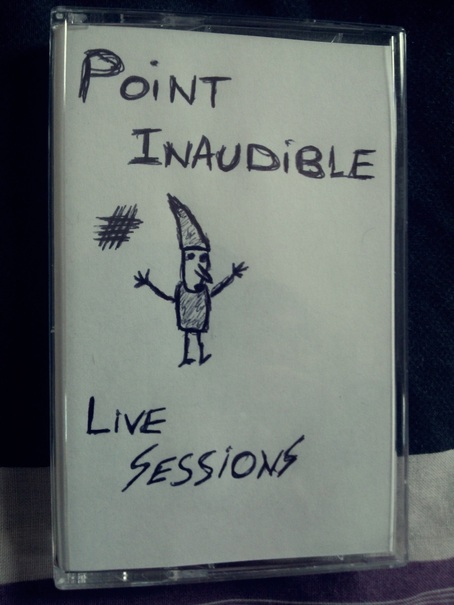 Point
Inaudible
Live
Sessions